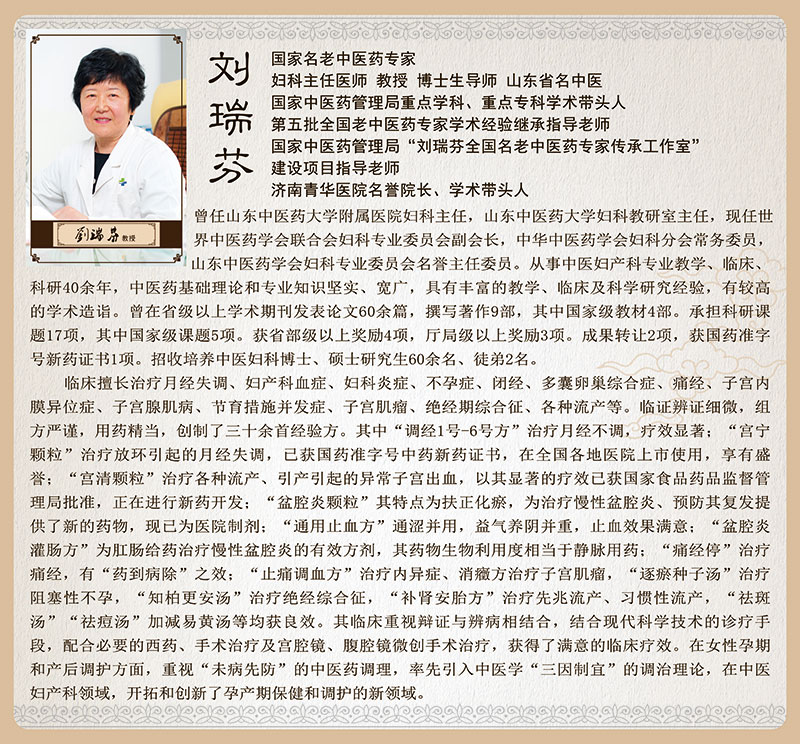 刘瑞芬
国家名老中医药专家
妇科主任医师 教授 博士生导师 山东省名中医
国家中医药管理局重点学科、重点专科学术带头人
第五批全国老中医药专家学术经验继承指导老师
国家中医药管理局“刘瑞芬全国名老中医药专家传承工作室”
建设项目指导老师
济南青华医院名誉院长、学术带头人
劉瑞芬 教授
曾任山东中医药大学附属医院妇科主任，山东中医药大学妇科教研室主任，现任世
界中医药学会联合会妇科专业委员会副会长，中华中医药学会妇科分会常务委员，
山东中医药学会妇科专业委员会名誉主任委员。从事中医妇产科专业教学、临床、
科研40余年，中医药基础理论和专业知识坚实、宽广，具有丰富的教学、临床及科学研究经验，有较高
的学术造诣。曾在省级以上学术期刊发表论文60余篇，撰写著作9部，其中国家级教材4部。承担科研课
题17项，其中国家级课题5项。获省部级以上奖励4项，厅局级以上奖励3项。成果转让2项，获国药准字
号新药证书1项。招收培养中医妇科博士、硕士研究生60余名、徒弟2名。
临床擅长治疗月经失调、妇产科血症、妇科炎症、不孕症、闭经、多囊卵巢综合症、痛经、子宫内
膜异位症、子宫腺肌病、节育措施并发症、子宫肌瘤、绝经期综合征、各种流产等。临证辨证细微，组
方严谨，用药精当，创制了三十余首经验方。其中“调经1号-6号方”治疗月经不调，疗效显著；“宫宁
颗粒”治疗放环引起的月经失调，已获国药准字号中药新药证书，在全国各地医院上市使用，享有盛
誉；“宫清颗粒”治疗各种流产、引产引起的异常子宫出血，以其显著的疗效已获国家食品药品监督管
理局批准，正在进行新药开发；“盆腔炎颗粒”其特点为扶正化瘀，为治疗慢性盆腔炎、预防其复发提
供了新的药物，现已为医院制剂；“通用止血方”通涩并用，益气养阴并重，止血效果满意；“盆腔炎
灌肠方”为肛肠给药治疗慢性盆腔炎的有效方剂，其药物生物利用度相当于静脉用药；“痛经停”治疗
痛经，有“药到病除”之效；“止痛调血方”治疗内异症、消癥方治疗子宫肌瘤，“逐瘀种子汤”治疗
阻塞性不孕，“知柏更安汤”治疗绝经综合征，“补肾安胎方”治疗先兆流产、习惯性流产，“祛斑
汤”“祛痘汤”加减易黄汤等均获良效。其临床重视辩证与辨病相结合，结合现代科学技术的诊疗手
段，配合必要的西药、手术治疗及宫腔镜、腹腔镜微创手术治疗，获得了满意的临床疗效。在女性孕期
和产后调护方面，重视“未病先防”的中医药调理，率先引入中医学“三因制宜”的调治理论，在中医
妇产科领域，开拓和创新了孕产期保健和调护的新领域。